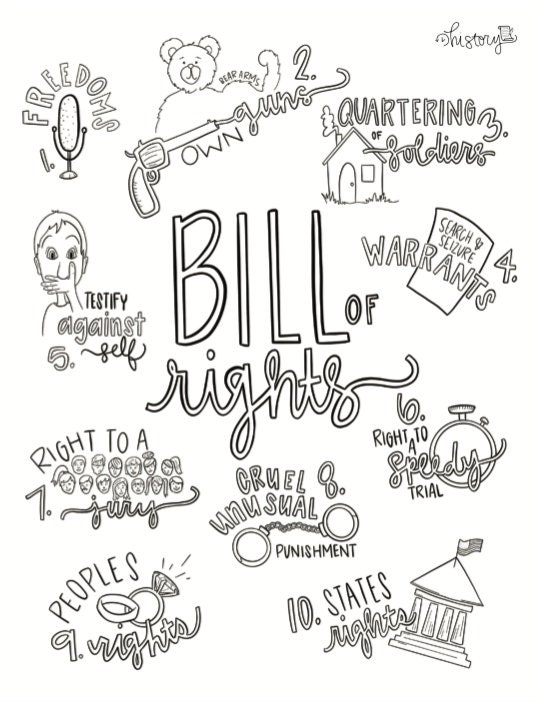 history
FREEDOMS
1.
2.
BEAR ARMS
OWN guns
QUARTERING
OF
soldiers 3.
SEARCH &
SEIZURE
WARRANTS 4.
TESTIFY
against
self
5.
BILL OF
rights
6.
RIGHT TO
A
speedy
TRIAL
RIGHT TO A
7. jury
CRUEL 8.
UNUSUAL
PUNISHMENT
PEOPLES
9. rights
10. STATES
rights